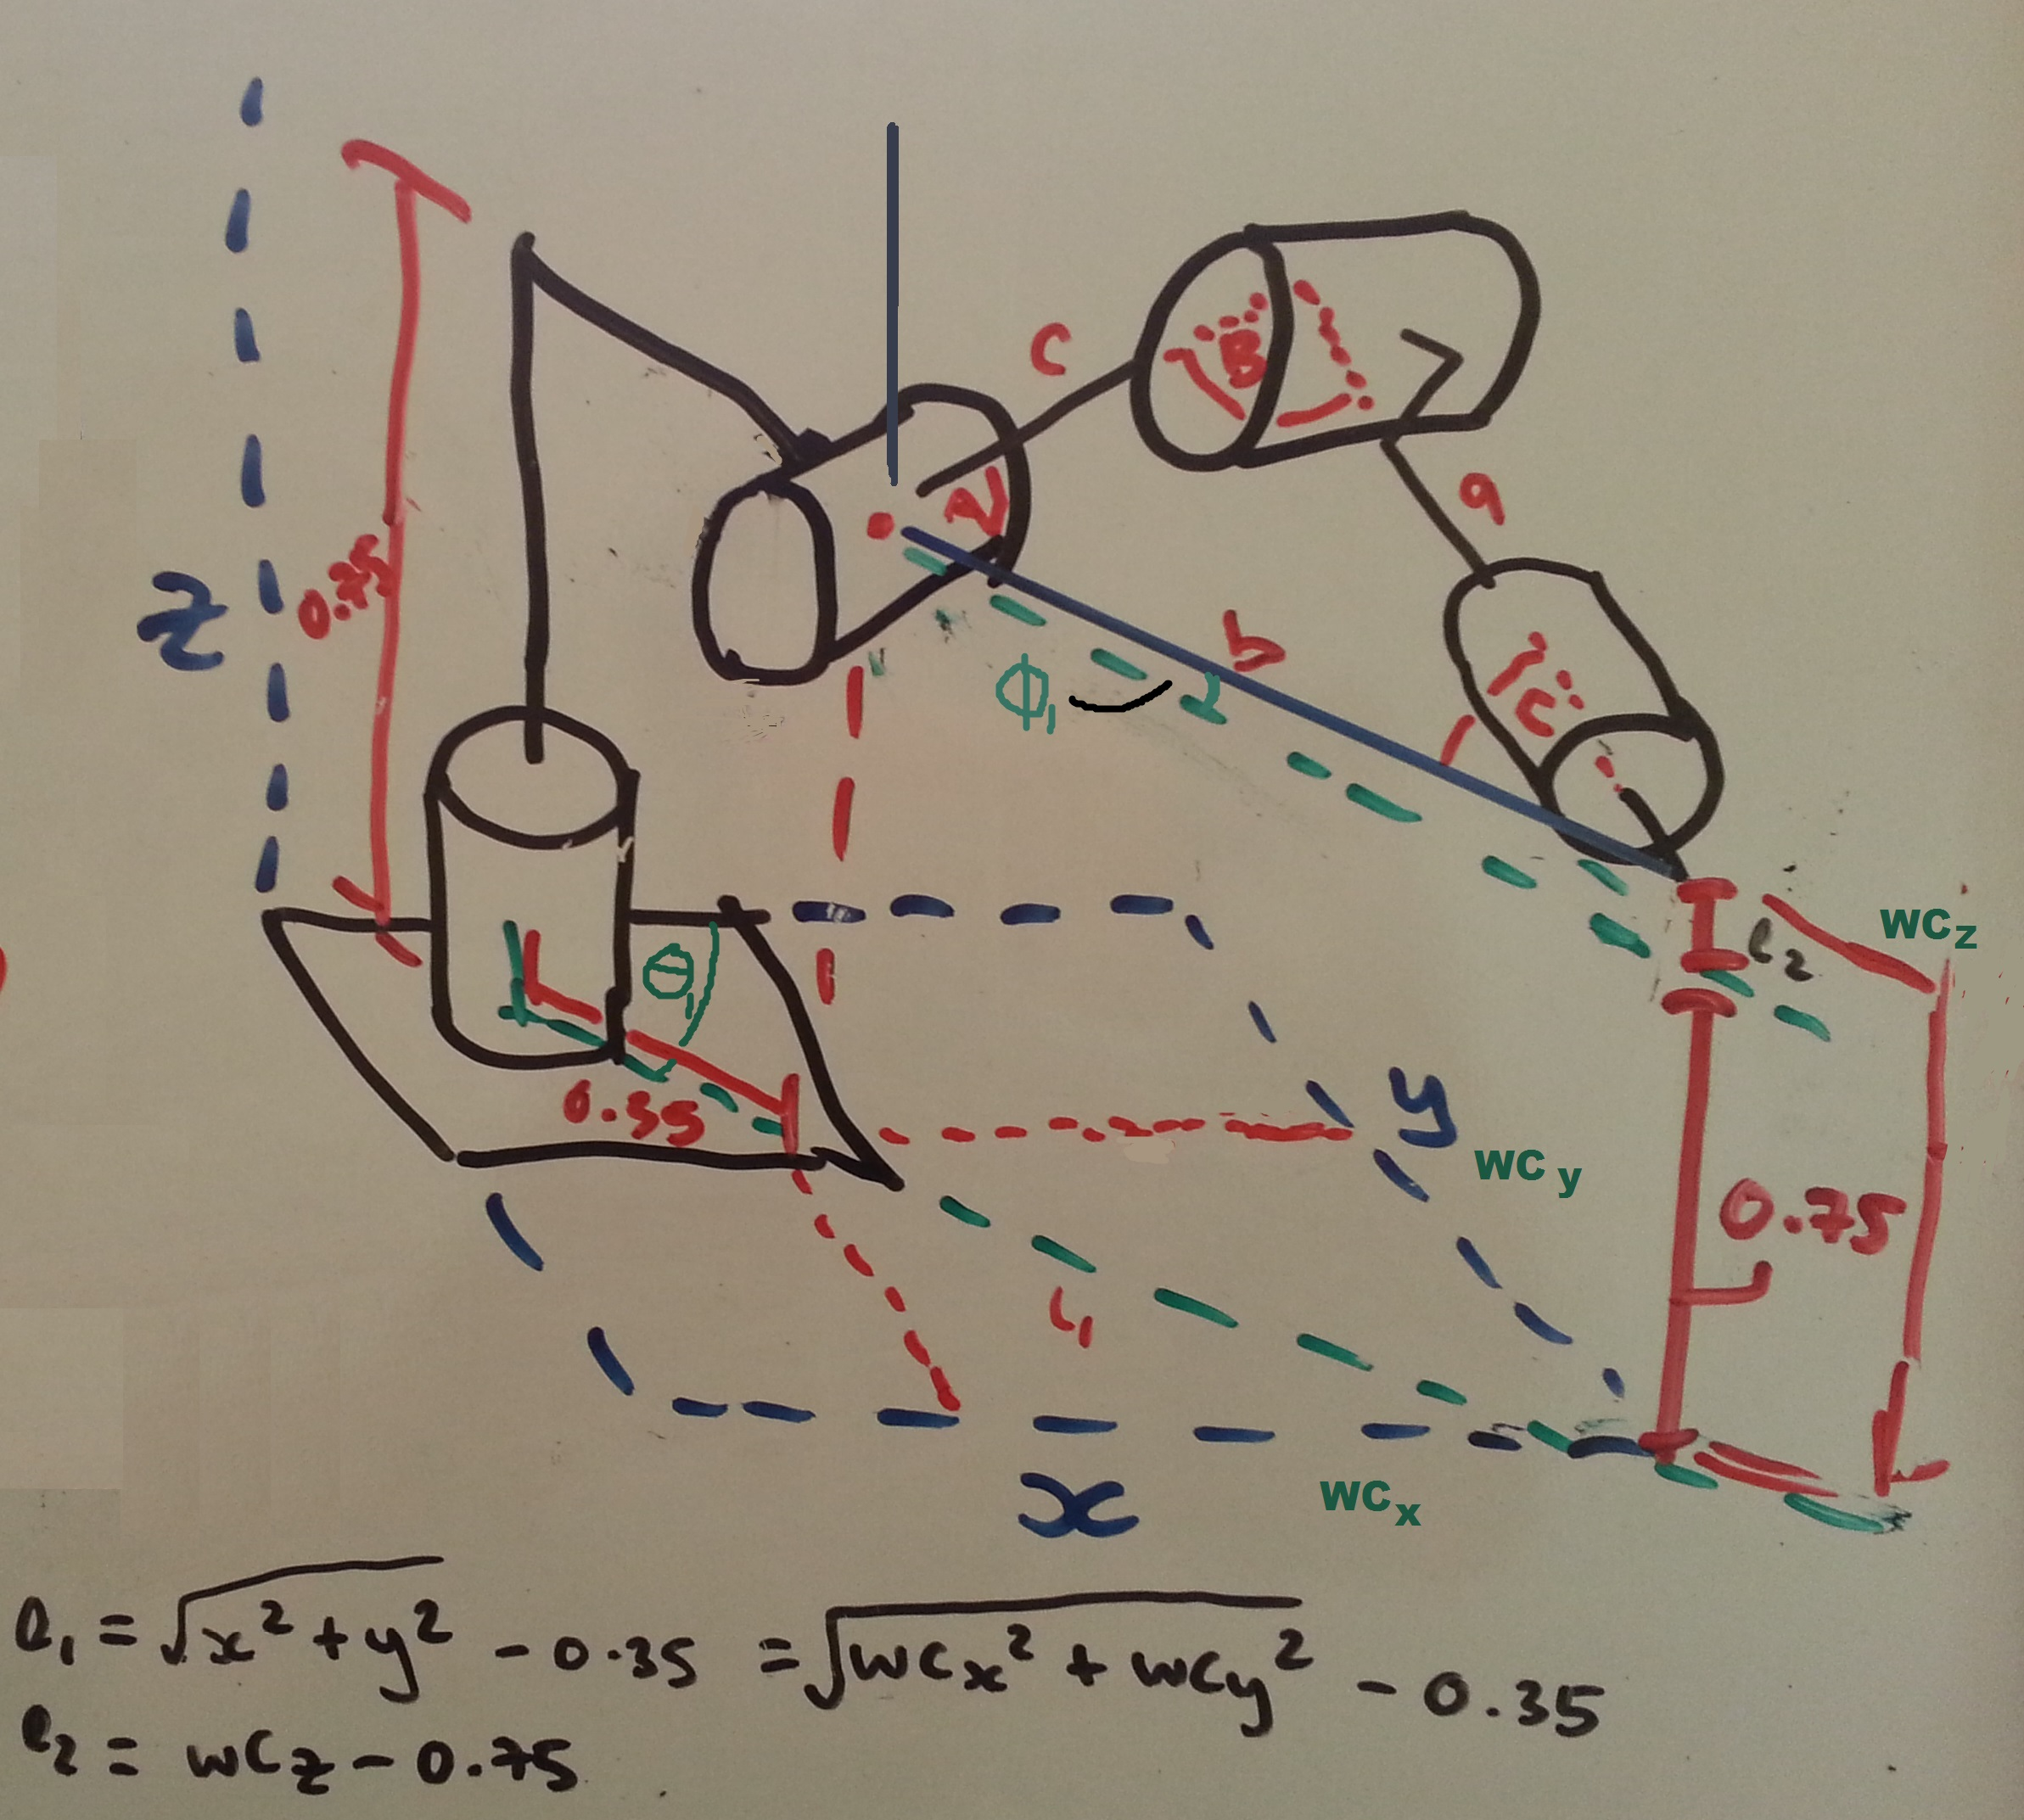 C
B
a
A
Z
0.75
b
Φ₁
C
l₂
WC_z
θ₁
0.35
y
WC_y
0.75
L₁
x
WC_x
l₁ = √(x² + y²) - 0.35 = √(WCx² + WCy²) - 0.35
l₂ = WCz - 0.75